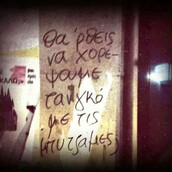 Θα 'ρθεις
να χορέ-
ψουμε
τανγκό
με τις
πυτζαμες;